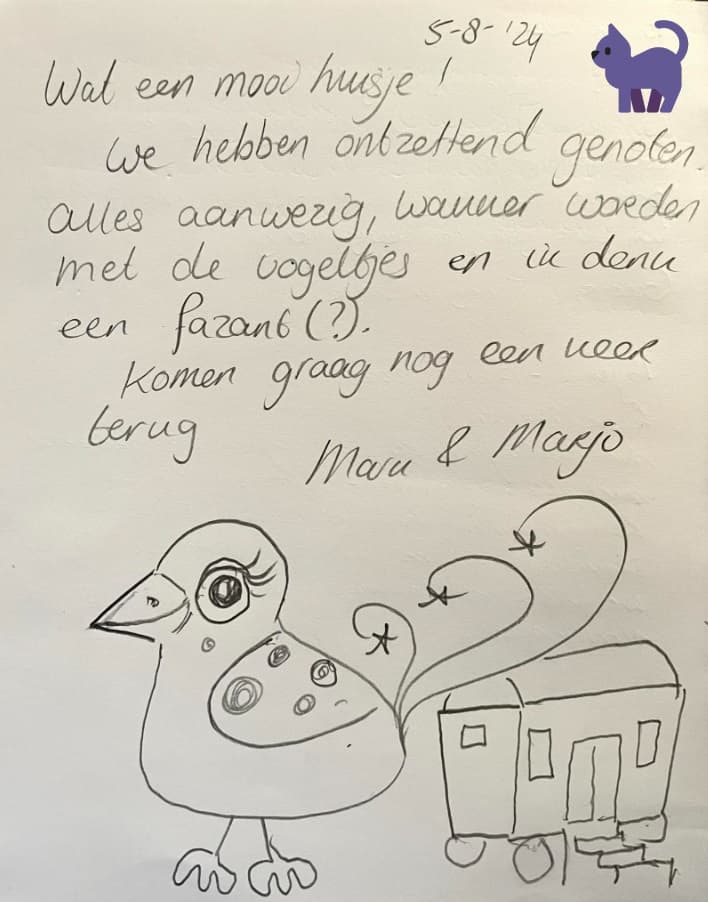 5-8-'24
Wat een mooi huisje!
We hebben ontzettend genoten.
Alles aanwezig, wakker worden
met de vogeltjes en in de tuin
een fazant(?).
Komen graag nog een keer
terug
& Marjo